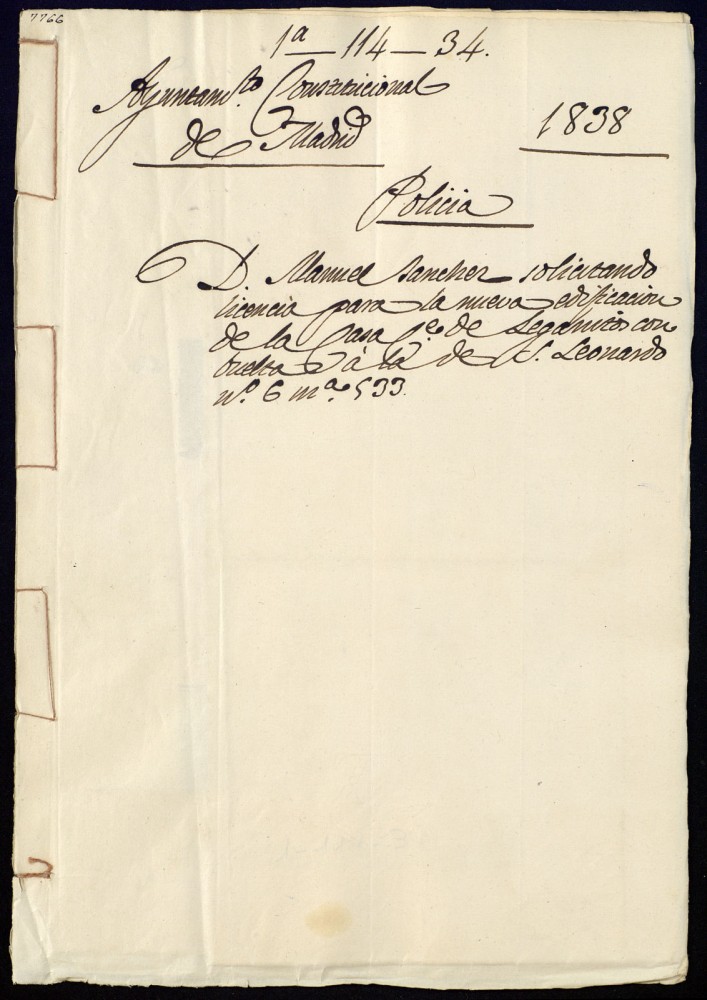 7766
1ª — 114 — 34.
Ayuntamto. Constitucional
de Madrid
1838
Policia
D. Manuel Sanchez solicitando
licencia para la nueva edificacion
de la Casa Ce. de Leganitos con
buelta à la de S. Leonardo
nº. 6 mª. 533.